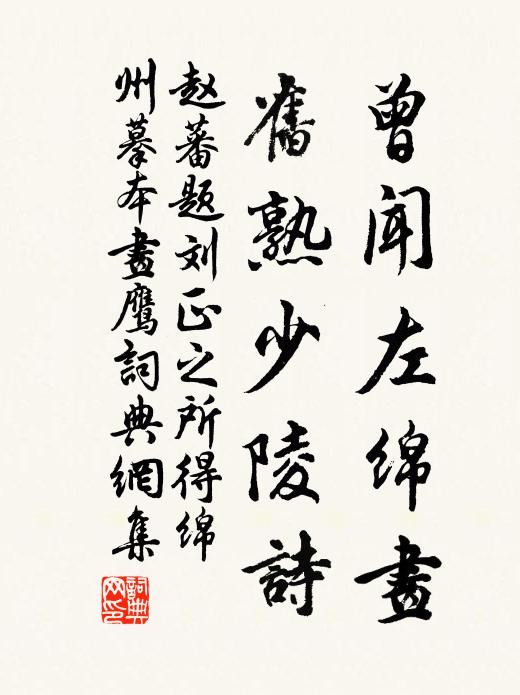 曾闻左绵畫
舊熟少陵詩
赵蕃题刘正之所得绵
州摹本畫鹰詞典網集
詞典
网印